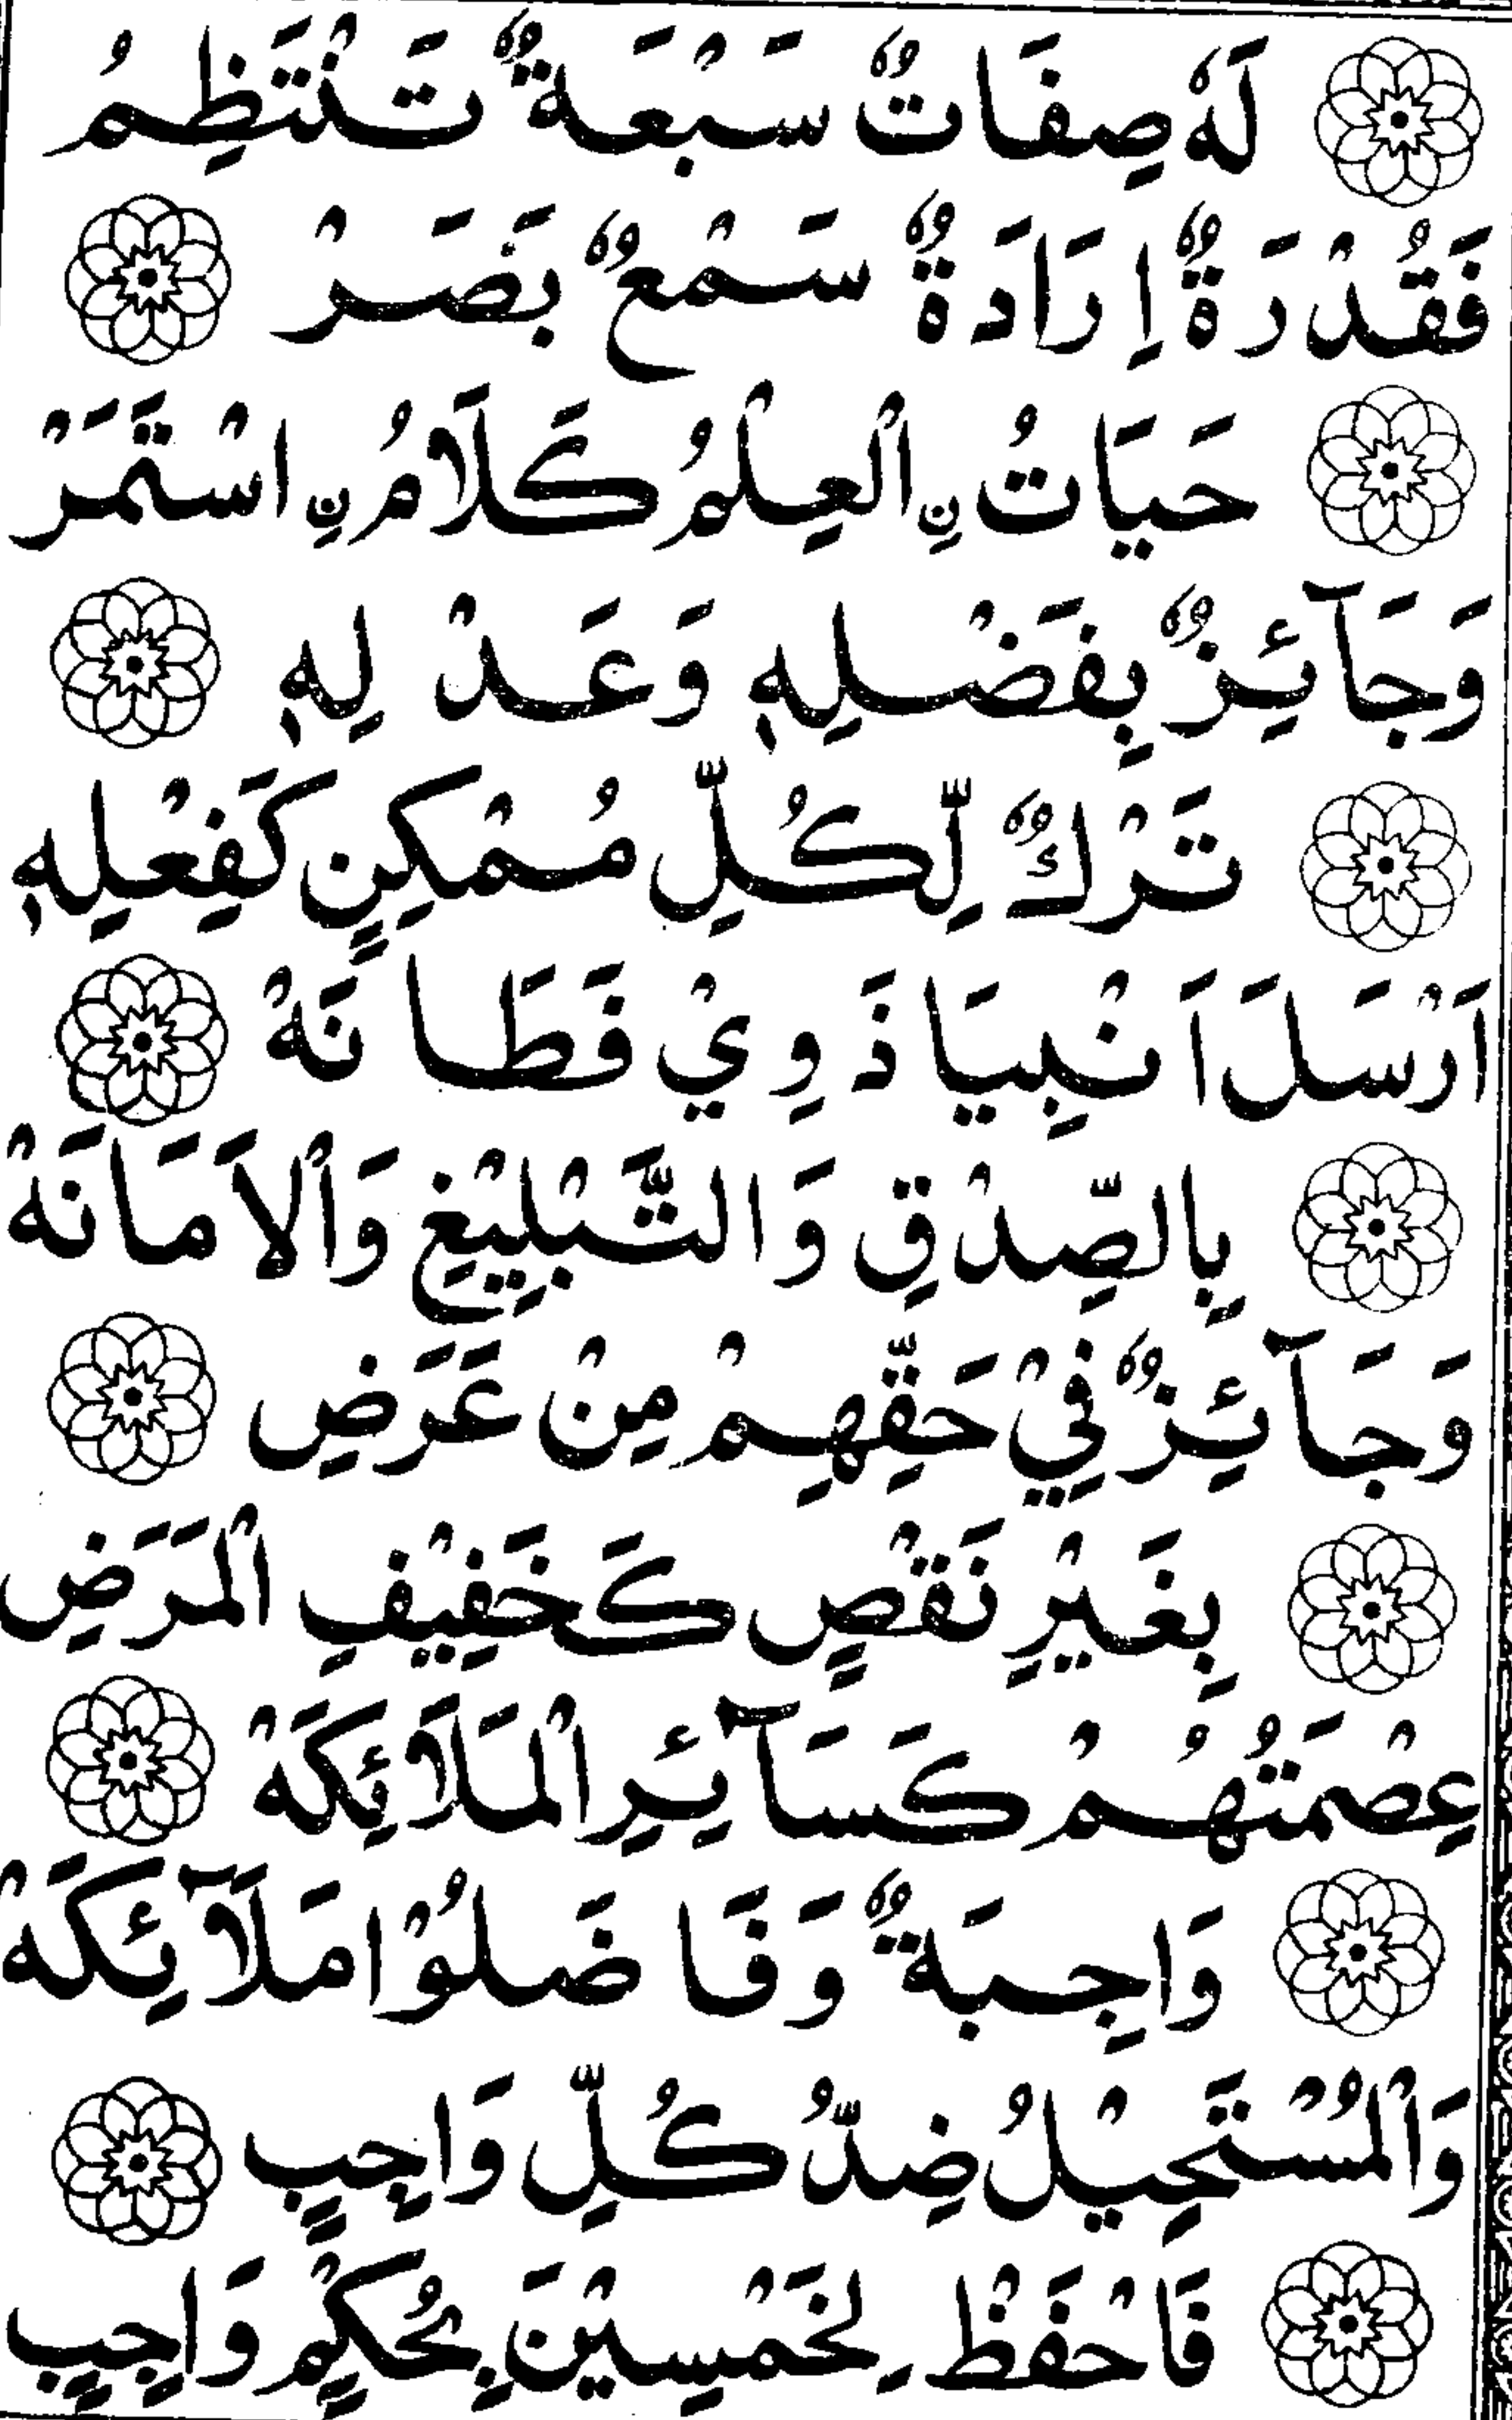 لَهٗ صِفَاتٌ سَبْعَةٌ تَنْتَظِمُ
فَقُدْرَةٌ اِرَادَةٌ سَمْعٌ بَصَرْ
حَيَاتُ نِ الْعِلْمُ كَلَامُ نِ اسْتَمَرْ
وَجَآئِزٌ بِفَضْلِهٖ وَعَدْ لِهٖ
تَرْكٌ لِّكُلِّ مُمْكِنٍ كَفِعْلِهٖ
اَرْسَلَ اَنْبِيَا ذَوِيْ فَطَا نَهْ
بِالصِّدْقِ وَالتَّبْلِيْغِ وَالْاَمَانَهْ
وَجَآئِزٌ فِيْ حَقِّهِمْ مِنْ عَرَضِ
بِغَيْرِ نَقْصٍ كَخَفِيْفِ الْمَرَضِ
عِصْمَتُهُمْ كَسَآئِرِ الْمَلَائِكَهْ
وَاجِبَةٌ وَفَاضَلُوْا مَلَآئِكَهْ
وَالْمُسْتَحِيْلُ ضِدُّ كُلِّ وَاجِبٍ
فَاحْفَظْ لِخَمْسِيْنَ بِحُكْمٍ وَاجِبٍ